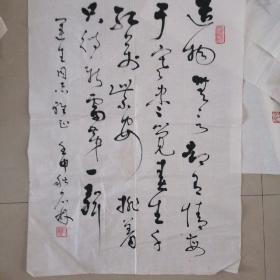 造物無言却有情每
于寒尽覺春生千
紅萬紫安排着
只待新雷第一聲
生同志雅正 壬申秋